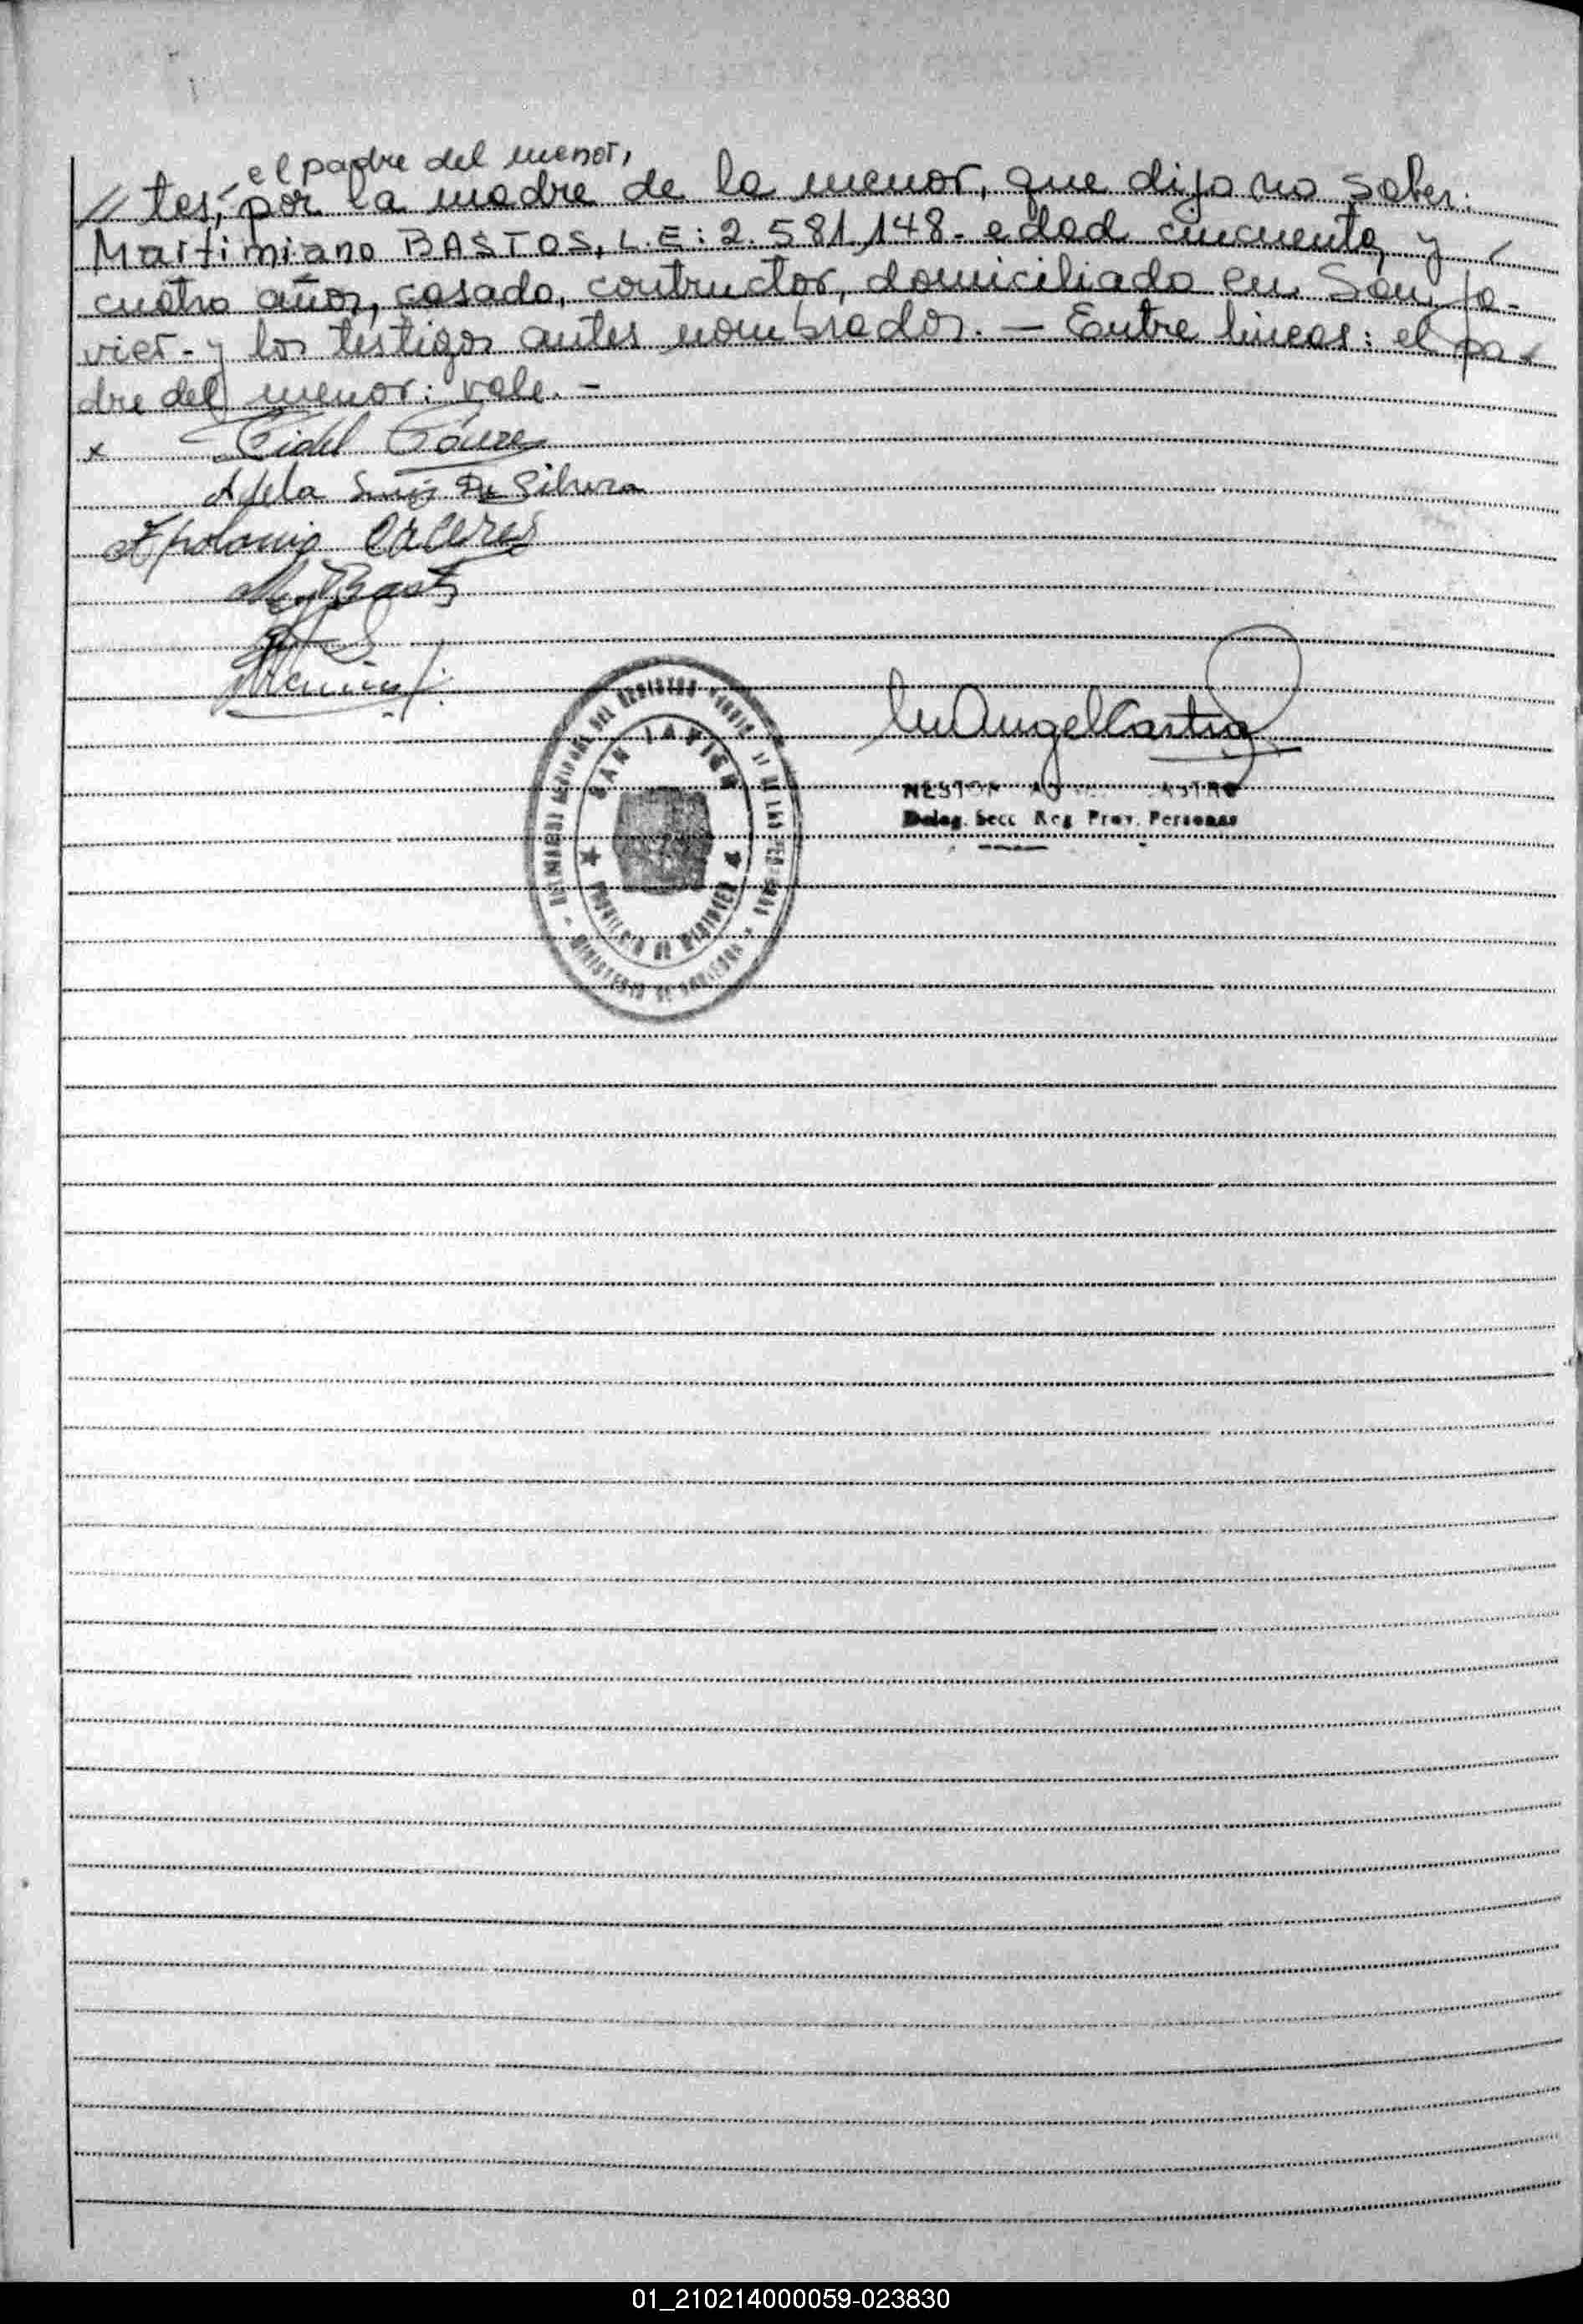 el padre del menor,
// tes, por la madre de la menor, que dijo no saber:
Martimiano BASTOS, L.E: 2.581.148- edad cincuenta y
cuatro años, casado, contructor, domiciliado en San Ja-
vier- y los testigos antes nombrados. — Entre lineas: el pa-
dre del menor: vale. -
x Fidel
Adela De Silvera
Apolonio Caceres
M. Bastos
SAN JAVIER
PROVINCIA DE MISIONES
MINISTERIO DE GOBIERNO
Angel Castro
NESTOR CASTRO
Deleg. Secc Reg Prov. Personas
01_210214000059-023830